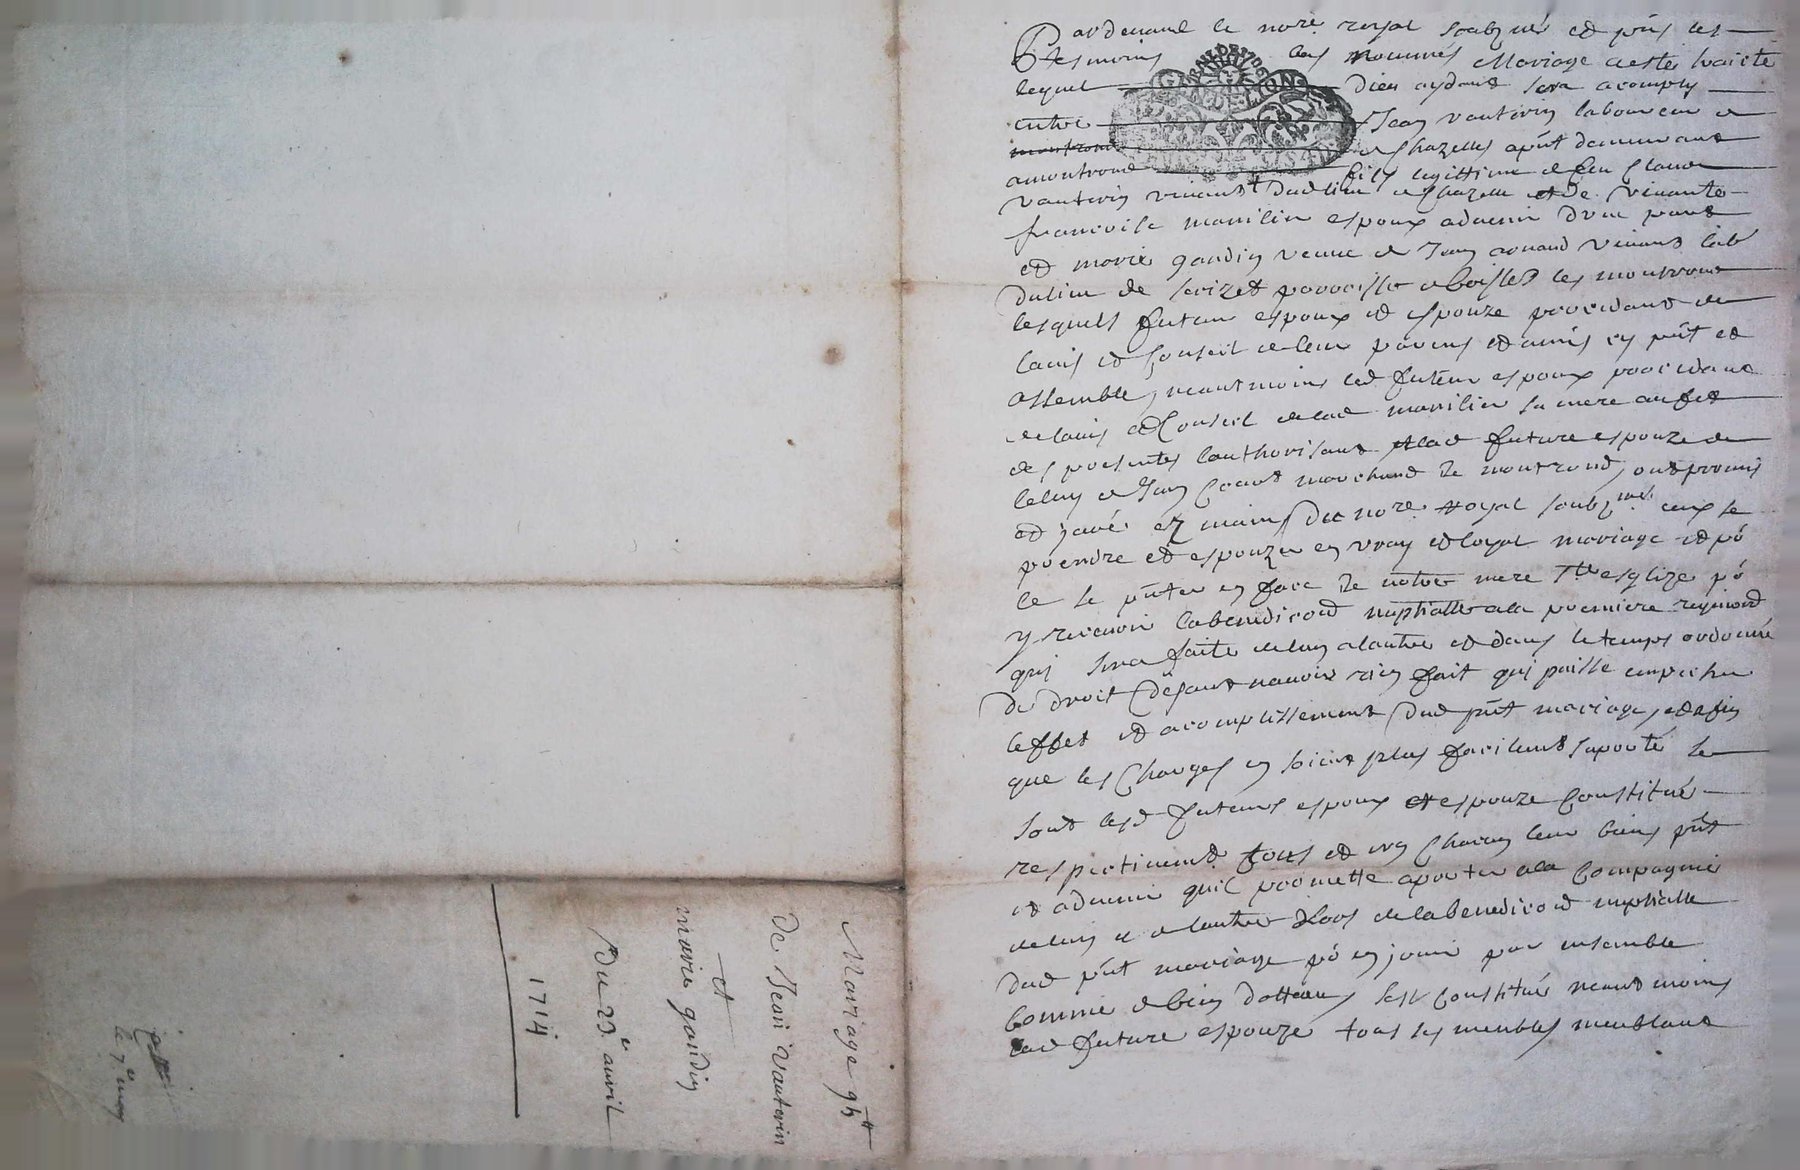 Pardevant le nore royal soubz né et pnts les
tesmoins bas nommés Mariage a esté traicte
lequel Dieu aydant sera acomply
entre Jean vauterin laboureur de
de Chazelles apnt demeurant
a montrond fils legittime de feu Claude
vauterin vivant dud lieu de Chazelle et de vivante
francoise manilier espoux advenir d'une part
et marie gaudin veuve de Jean vivant lab
du lieu de parroisse de boisset les montrond
lesquels futeur espoux et espouze procedant de
lavis et Conseil de leur parens et amis cy pnt et
assemble, neantmoins led futeur espoux procedant
de lavis et Conseil de lad manilier sa mere au fet
des presentes lauthorisant et lad future espouze de
celuy de Jean marchand de montrond, ont promis
et juré ez mains du nore royal soubzné eux se
prendre et espouzer en vray et loyal mariage et po
ce se pnter en face de notre mere Ste esglize po
y recevoir la benediction nuptialle a la premiere requisiond
qui sera faite de lun a lautre et dans le temps ordonné
de droit disant navoir rien fait qui puisse empecher
leffet et acomplissement dud pnt mariage, et afin
que les Charges en soient plus facilemt suporté se
sont lesd futeurs espoux et espouze Constitué
respectivemt tous et un Chacun leur biens pnt
et advenir quil promette aporter a la Compagnie
de lun et de lautre lors de la benediction nuptialle
dud pnt mariage po en jouir par ensemble
Comme de bien dottaux, sest Constitué neantmoins
lad future espouze tous ses meubles meublant
Mariage gntt
de Jean Vauterin
et
marie gaudin
Du 23e avril
1714